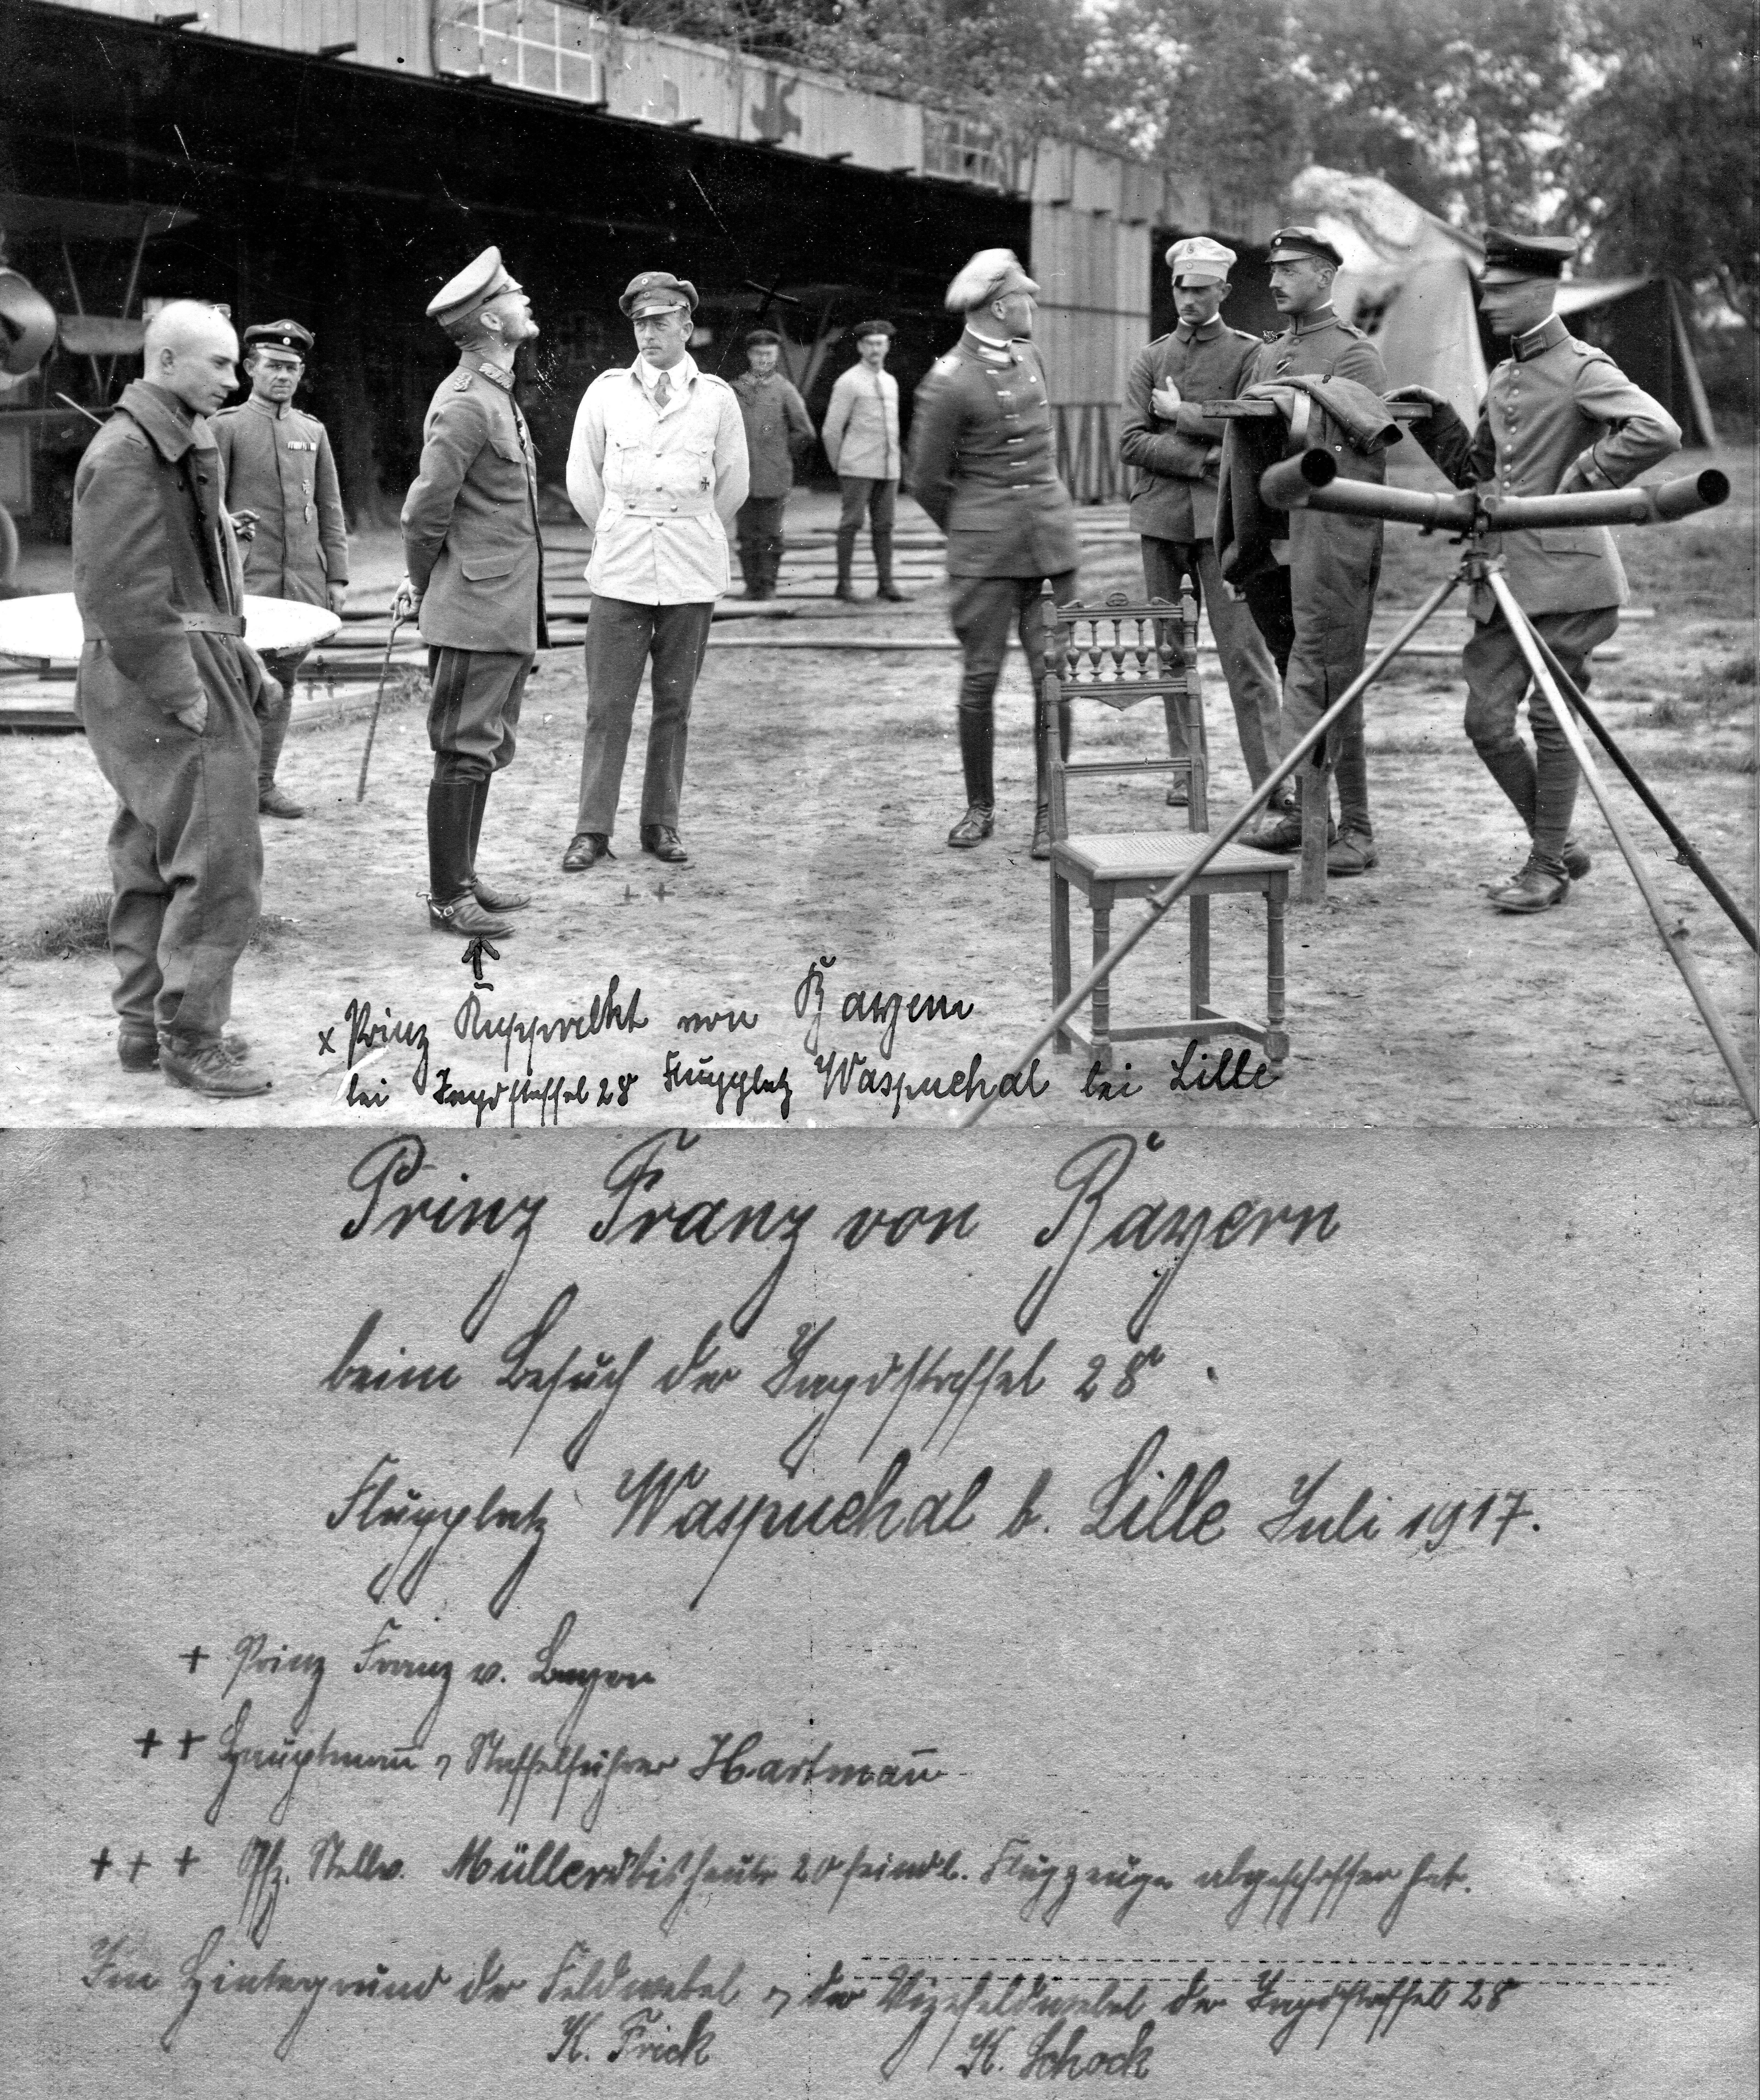 x Prinz Rupprecht von Bayern
bei Jagdstaffel 28 Flugplatz Wasquehal bei Lille
Prinz Franz von Bayern
beim Besuch der Jagdstaffel 28
Flugplatz Wasquehal b. Lille Juli 1917.
+ Prinz Franz v. Bayern
++ Hauptmann u Staffelführer Hartmann
+++ Offz. Stellv. Müller d bis heute 20 feindl. Flugzeuge abgeschossen hat.
Im Hintergrund der Feldwebel u der Vizefeldwebel der Jagdstaffel 28
K. Frick K. Schock